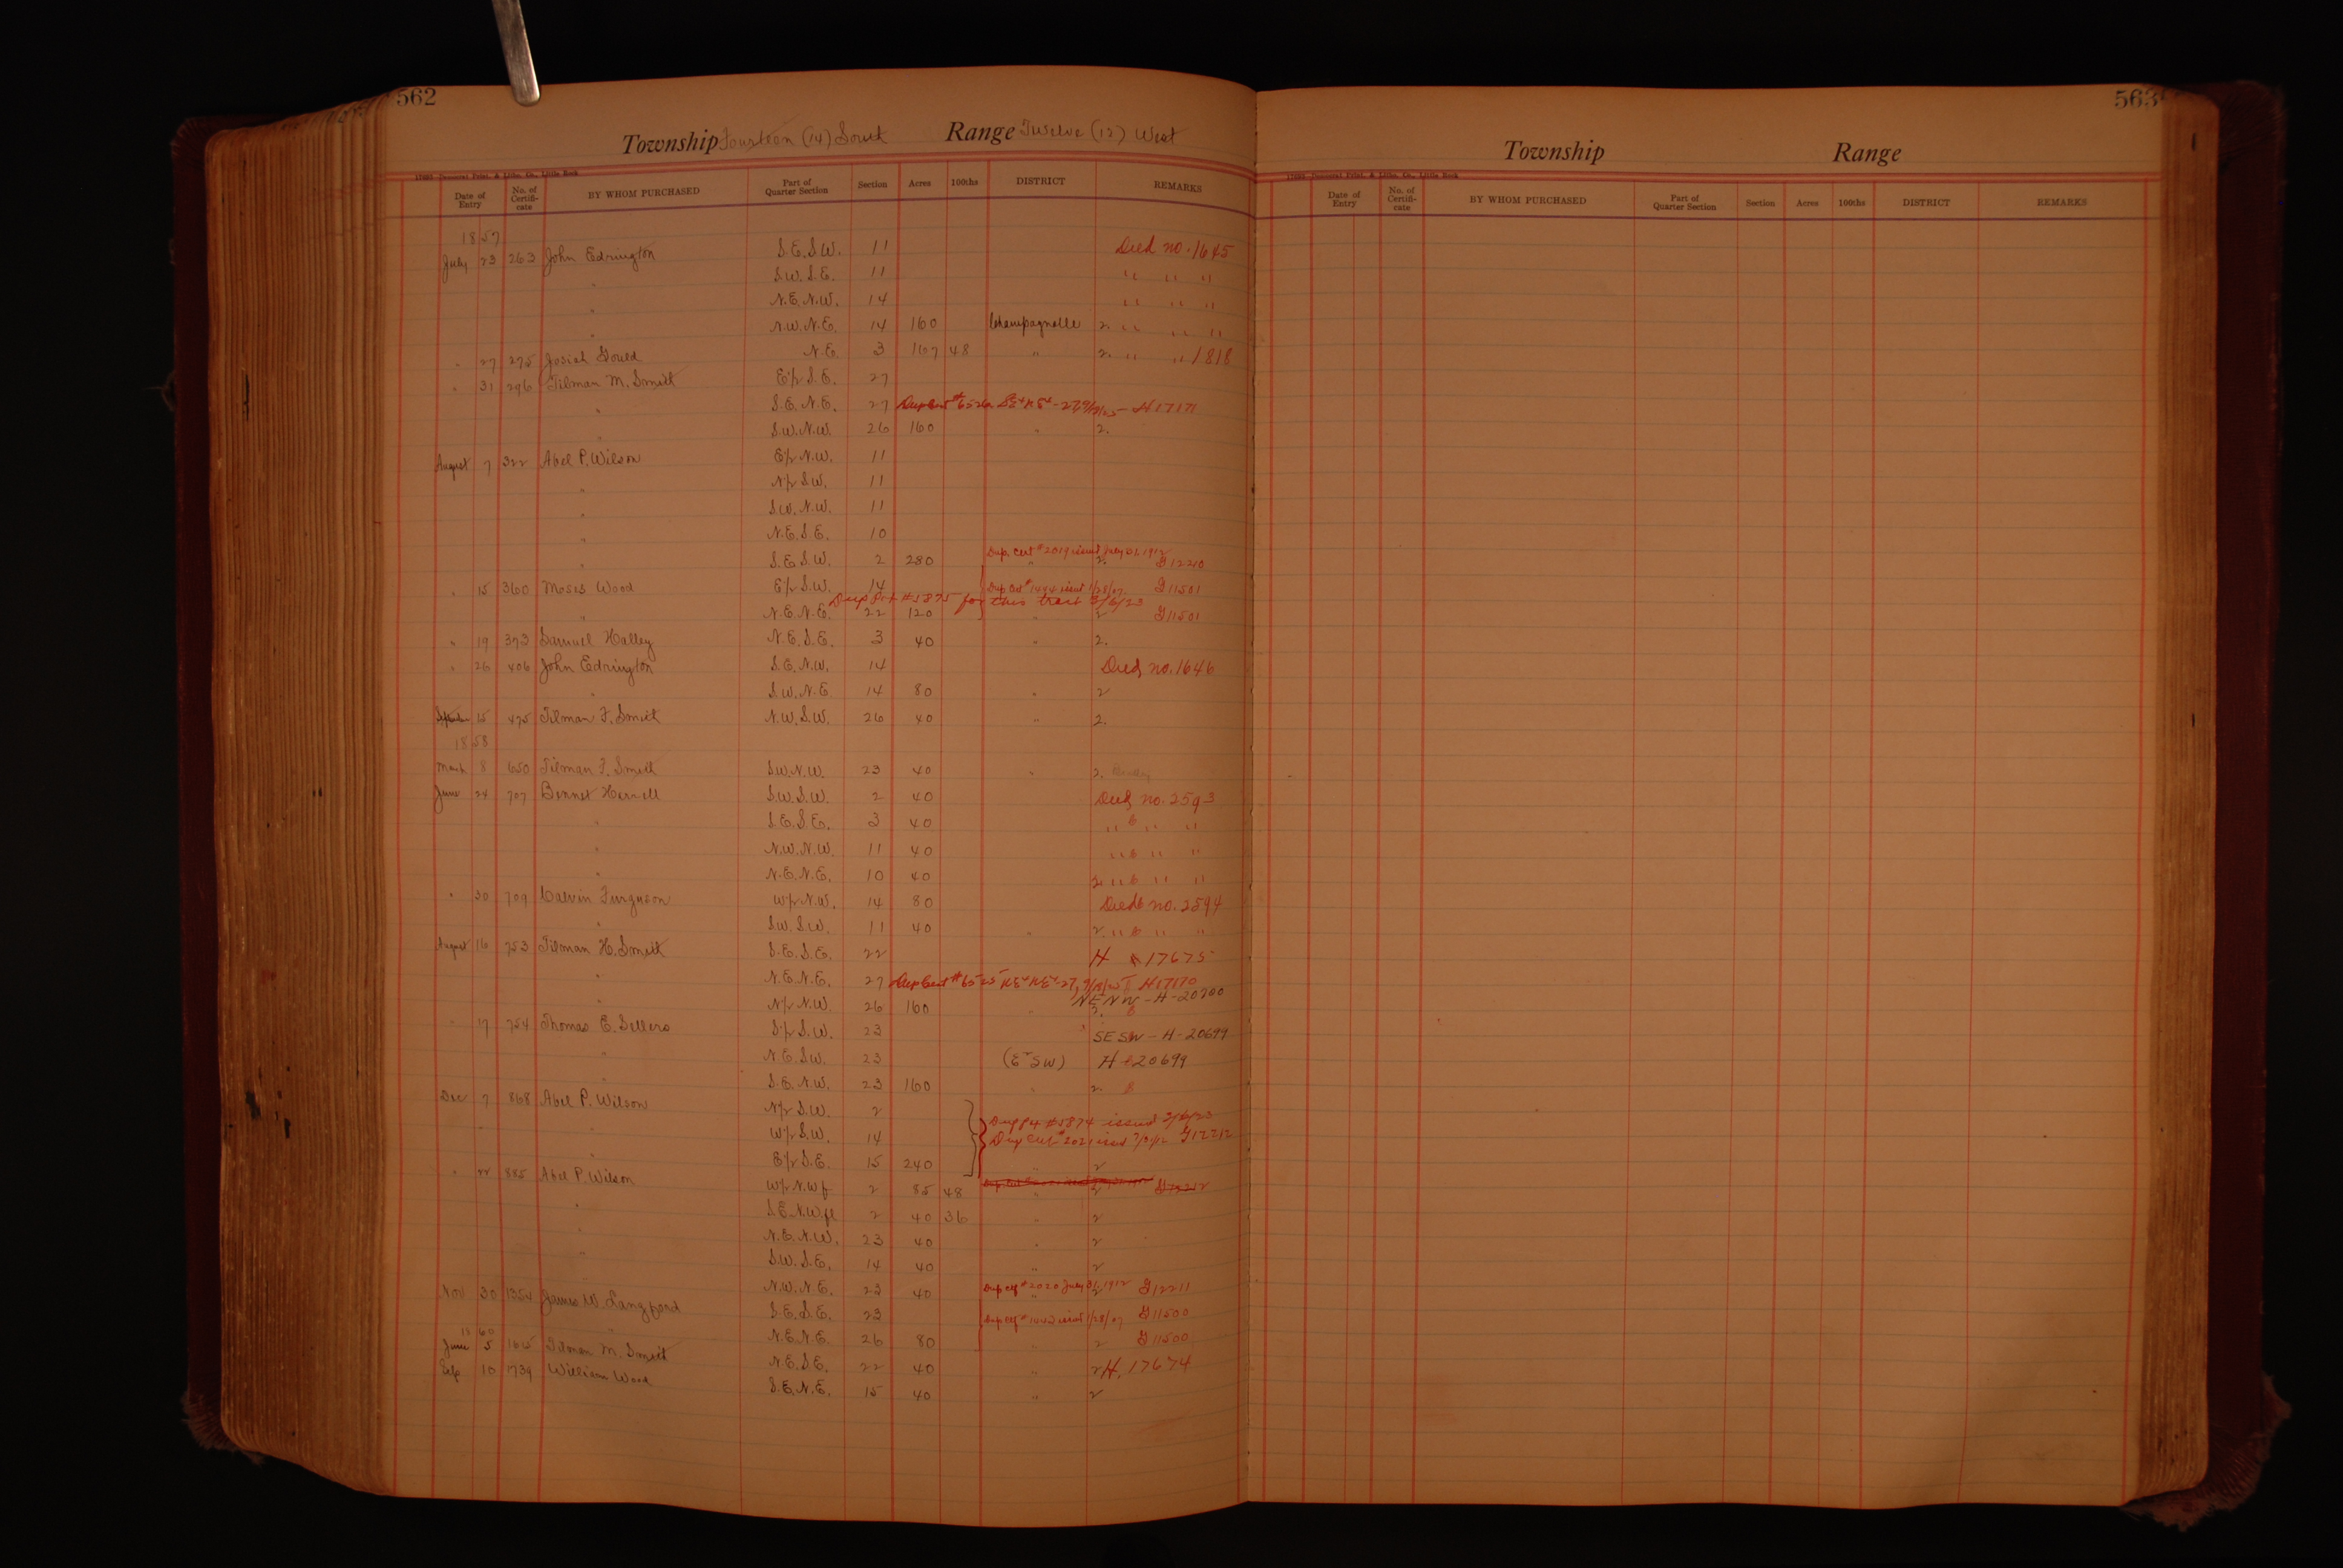 562
Township Fourteen (14) South Range Twelve (12) West
Democrat Print. & Litho. Co., Little Rock
Date of Entry No. of Certifi-cate BY WHOM PURCHASED Part of Quarter Section Section Acres 100ths DISTRICT REMARKS
1857
July 23 263 John Edrington S.E.S.W. 11 Deed no. 1645
" S.W.S.E. 11 " " "
" N.E.N.W. 14 " " "
" N.W.N.E. 14 160 Champagnolle 2. " " "
" 27 275 Josiah Gould N.E. 3 167 48 " 2. " " 1818
" 31 296 Tilman M. Smith E½ S.E. 27
" S.E.N.E. 27 Dup Cert # 6526 SE¼ NE¼ - 27, H17171
" S.W.N.W. 26 160 " 2.
August 7 322 Abel P. Wilson E½ N.W. 11
" N½ S.W. 11
" S.W.N.W. 11
" N.E.S.E. 10
" S.E.S.W. 2 280 Dup. Cert # 2019 issued July 31, 1912 " 2. G12210
" 15 360 Moses Wood E½ S.W. 14 Dup Cert # issued 1/28/07 G11501
Dup Pat #5875 for this tract 3/6/23
" N.E.N.E. 22 120 " 2 G11501
" 19 373 Samuel Halley N.E.S.E. 3 40 " 2.
" 26 406 John Edrington S.E.N.W. 14 Deed no. 1646
" S.W.N.E. 14 80 " 2
September 15 475 Tilman F. Smith N.W.S.W. 26 40 " 2.
1858
March 8 650 Tilman F. Smith S.W.N.W. 23 40 " 2.
June 24 707 Bennet Harrell S.W.S.W. 2 40 Deed no. 2593
" S.E.S.E. 3 40 " " "
" N.W.N.W. 11 40 " " "
" N.E.N.E. 10 40 2. " " "
" 30 709 Calvin Furguson W½ N.W. 14 80 Deed no. 2594
" S.W.S.W. 11 40 " 2. " " "
August 16 753 Tilman H. Smith S.E.S.E. 22 H 17675
" N.E.N.E. 27 Dup Cert # 6525 NE¼ NE¼ - 27, H17170
" N½ N.W. 26 160 " 2. NENW - H - 20700
" 17 754 Thomas E. Sellers S½ S.W. 23 SESW - H - 20699
" N.E.S.W. 23 (E½ SW) H 20699
" S.E.N.W. 23 160 " 2.
Dec 7 868 Abel P. Wilson N½ S.W. 2
" W½ S.W. 14 Dup Pat #5874 issued 3/6/23
Dup Cert # 2021 issued 7/31/12 G12212
" E½ S.E. 15 240 " 2
" 22 885 Abel P. Wilson W½ N.W f 2 85 48 " 2 G12212
" S.E.N.W fl 2 40 36 " 2
" N.E.N.W. 23 40 " 2
" S.W.S.E. 14 40 " 2
" N.W.N.E. 23 40 Dup cert # 2020 July 31, 1912 " 2 G12211
Nov 30 1354 James W. Langford S.E.S.E. 23 Dup cert # issued 1/28/07 G11500
" N.E.N.E. 26 80 " 2 G11500
1860
June 5 Tilman M. Smith N.E.S.E. 22 40 " 2 H. 17674
Sep 10 1739 William Wood S.E.N.E. 15 40 " 2
563
Township Range
Democrat Print. & Litho. Co., Little Rock
Date of Entry No. of Certifi-cate BY WHOM PURCHASED Part of Quarter Section Section Acres 100ths DISTRICT REMARKS